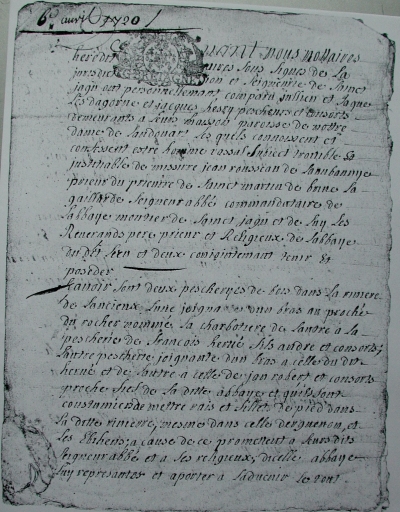 6e avril 1720
devant nous nottaires
heredit sous signés de La
jurisdiction et seigneurie de sainct
jagu ont personnellement comparu jullien et jaque
Les dagorne et jacques hesry pescheurs et consorts
demeurants a leurs maison paroisse de nottre
dame de Landouar Les quels connoissent et
confessent estre homme vassal subject
justiciable de missire jean
prieur du prieuré de sainct martin de
gaillarde seigneur abbé commandataire de
labbaye moutier de sainct jagu et de Luy Les
Reverands pere prieur et Religieux de labbaye
du dit lieu et deux conjointement tenir &
posider
scavoir sont deux pescheryes de bois dans La riviere
de Lancieux Lune joignante un bras au proche
du rocher nommé La charbotiere de Lautre a la
pescherie de francois hervé fils andré et consorts,
Lautre pescherie joignante dun bras a celle du dit
hervé et de Lautre a celle de jan robert et consorts
proche fief de La ditte abbaye et quils sont
constumé de mettre rais et fillet de pied dans
La ditte riviere, mesme dans celle darguenon, et
Les a cause de ce promettent a Leurs dits
seigneur abbé et a ses religieux, dicelle abbaye
Luy représantes et aporter a Ladvenir Le